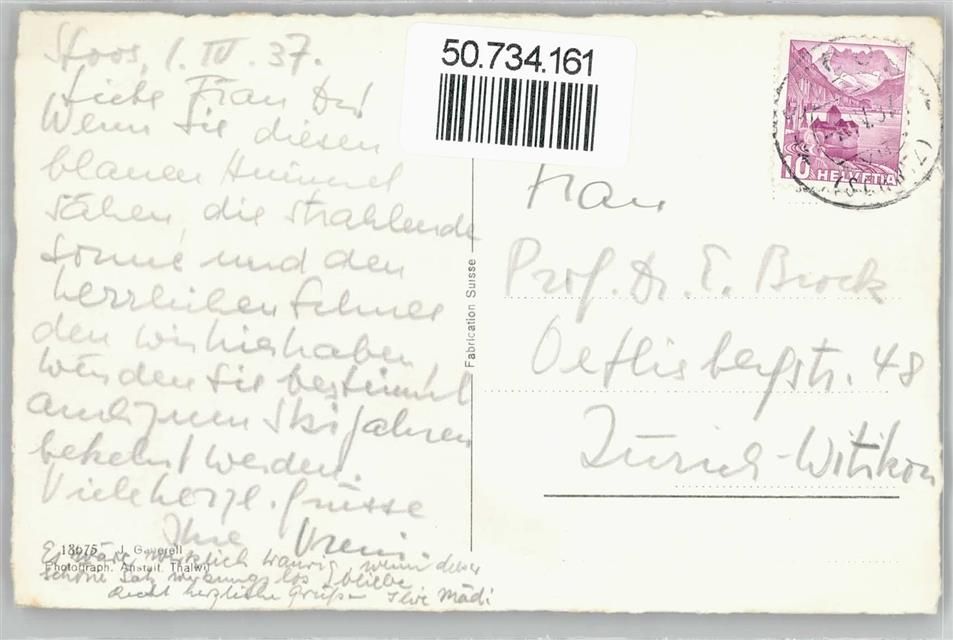 50.734.161
Stoos, 1. IV. 37.
Liebe Frau Dr!
Wenn Sie diesen
blauen Himmel
sähen, die strahlende
Sonne und den
herrlichen Schnee
den wir hier haben
würden Sie bestimmt
auch zum Skifahren
bekehrt werden.
Viele herzl. Grüsse
Ihre Vreni.
Es wäre wirklich traurig, wenn dieser
schöne Satz wirkungslos bliebe
Recht herzliche Grüße Ihre Mädi
13675 J. Gaberell
Photograph. Anstalt. Thalwil
Fabrication Suisse
10 HELVETIA
Frau
Prof. Dr. E. Brock
Oetlisbergstr. 48
Zürich-Witikon